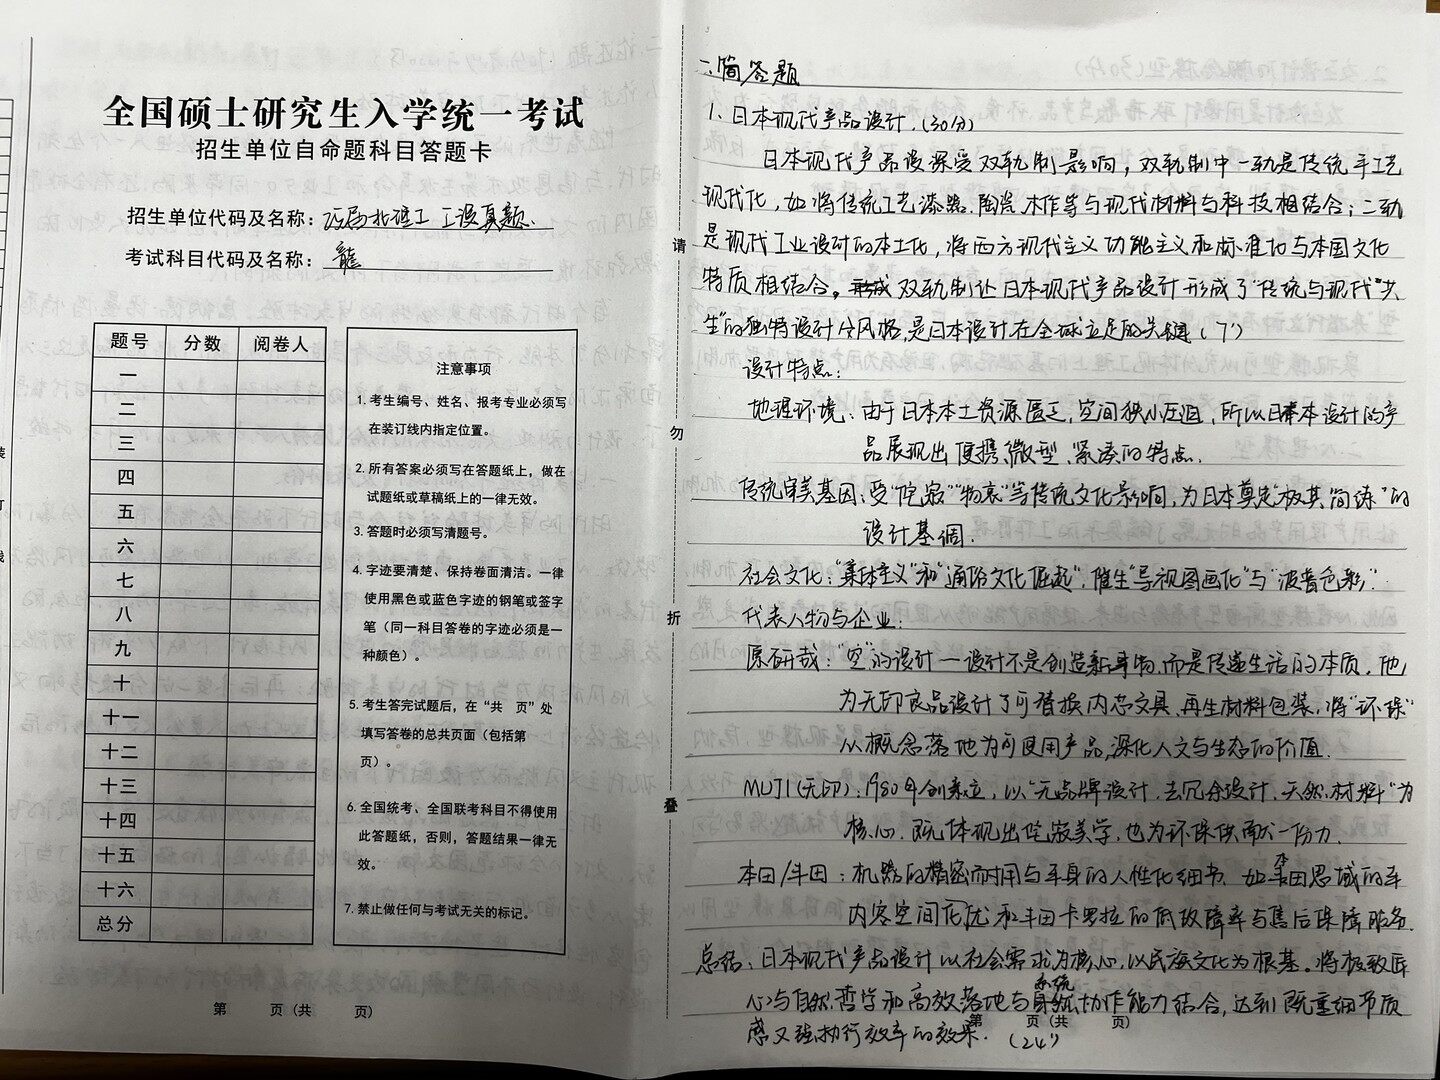 全国硕士研究生入学统一考试
招生单位自命题科目答题卡
招生单位代码及名称：25届北理工 工设真题.
考试科目代码及名称：
题号 分数 阅卷人
一
二
三
四
五
六
七
八
九
十
十一
十二
十三
十四
十五
十六
总分
注意事项
1. 考生编号、姓名、报考专业必须写
在装订线内指定位置。
2. 所有答案必须写在答题纸上，做在
试题纸或草稿纸上的一律无效。
3. 答题时必须写清题号。
4. 字迹要清楚、保持卷面清洁。一律
使用黑色或蓝色字迹的钢笔或签字
笔（同一科目答卷的字迹必须是一
种颜色）。
5. 考生答完试题后，在“共　页”处
填写答卷的总共页面（包括第
页）。
6. 全国统考、全国联考科目不得使用
此答题纸，否则，答题结果一律无
效。
7. 禁止做任何与考试无关的标记。
第　　页（共　　页）
请
勿
折
叠
一、简答题
1. 日本现代产品设计.（30分）
日本现代产品设深受双轨制影响，双轨制中一轨是传统手工艺
现代化，如将传统工艺漆器、陶瓷、木作等与现代材料与科技相结合；二轨
是现代工业设计的本土化，将西方现代主义功能主义和标准化与本国文化
特质相结合。双轨制让日本现代产品设计形成了“传统与现代”共
生”的独特设计风格，是日本设计在全球立足的关键（7'）
设计特点：
地理环境：由于日本本土资源匮乏，空间狭小压迫，所以日本设计的产
品展现出便携、微型、紧凑的特点.
传统审美基因：受“侘寂”“物哀”等传统文化影响，为日本奠定“极其简练”的
设计基调.
社会文化：“集体主义”和“通俗文化崛起”，催生“导视图画化”与“波普色彩”.
代表人物与企业：
原研哉：“空”的设计—设计不是创造新事物，而是传递生活的本质。他
为无印良品设计了可替换内芯文具、再生材料包装，将“环保”
从概念落地为可使用产品，深化人文与生态的价值.
MUJI(无印)：1980年创立，以“无品牌设计、去冗余设计、天然材料”为
核心. 既体现出侘寂美学，也为环保供献一份力.
本田/丰田：机器的精密耐用与车身的人性化细节，如本田思域的车
内容空间优化和丰田卡罗拉的低故障率与售后保障服务.
总结：日本现代产品设计以社会需求为核心，以民族文化为根基。将极致匠
心与自然哲学和高效落地与系统协作能力结合，达到既重细节质
感又强执行效率的效果.（24'）
第　　页（共　　页）